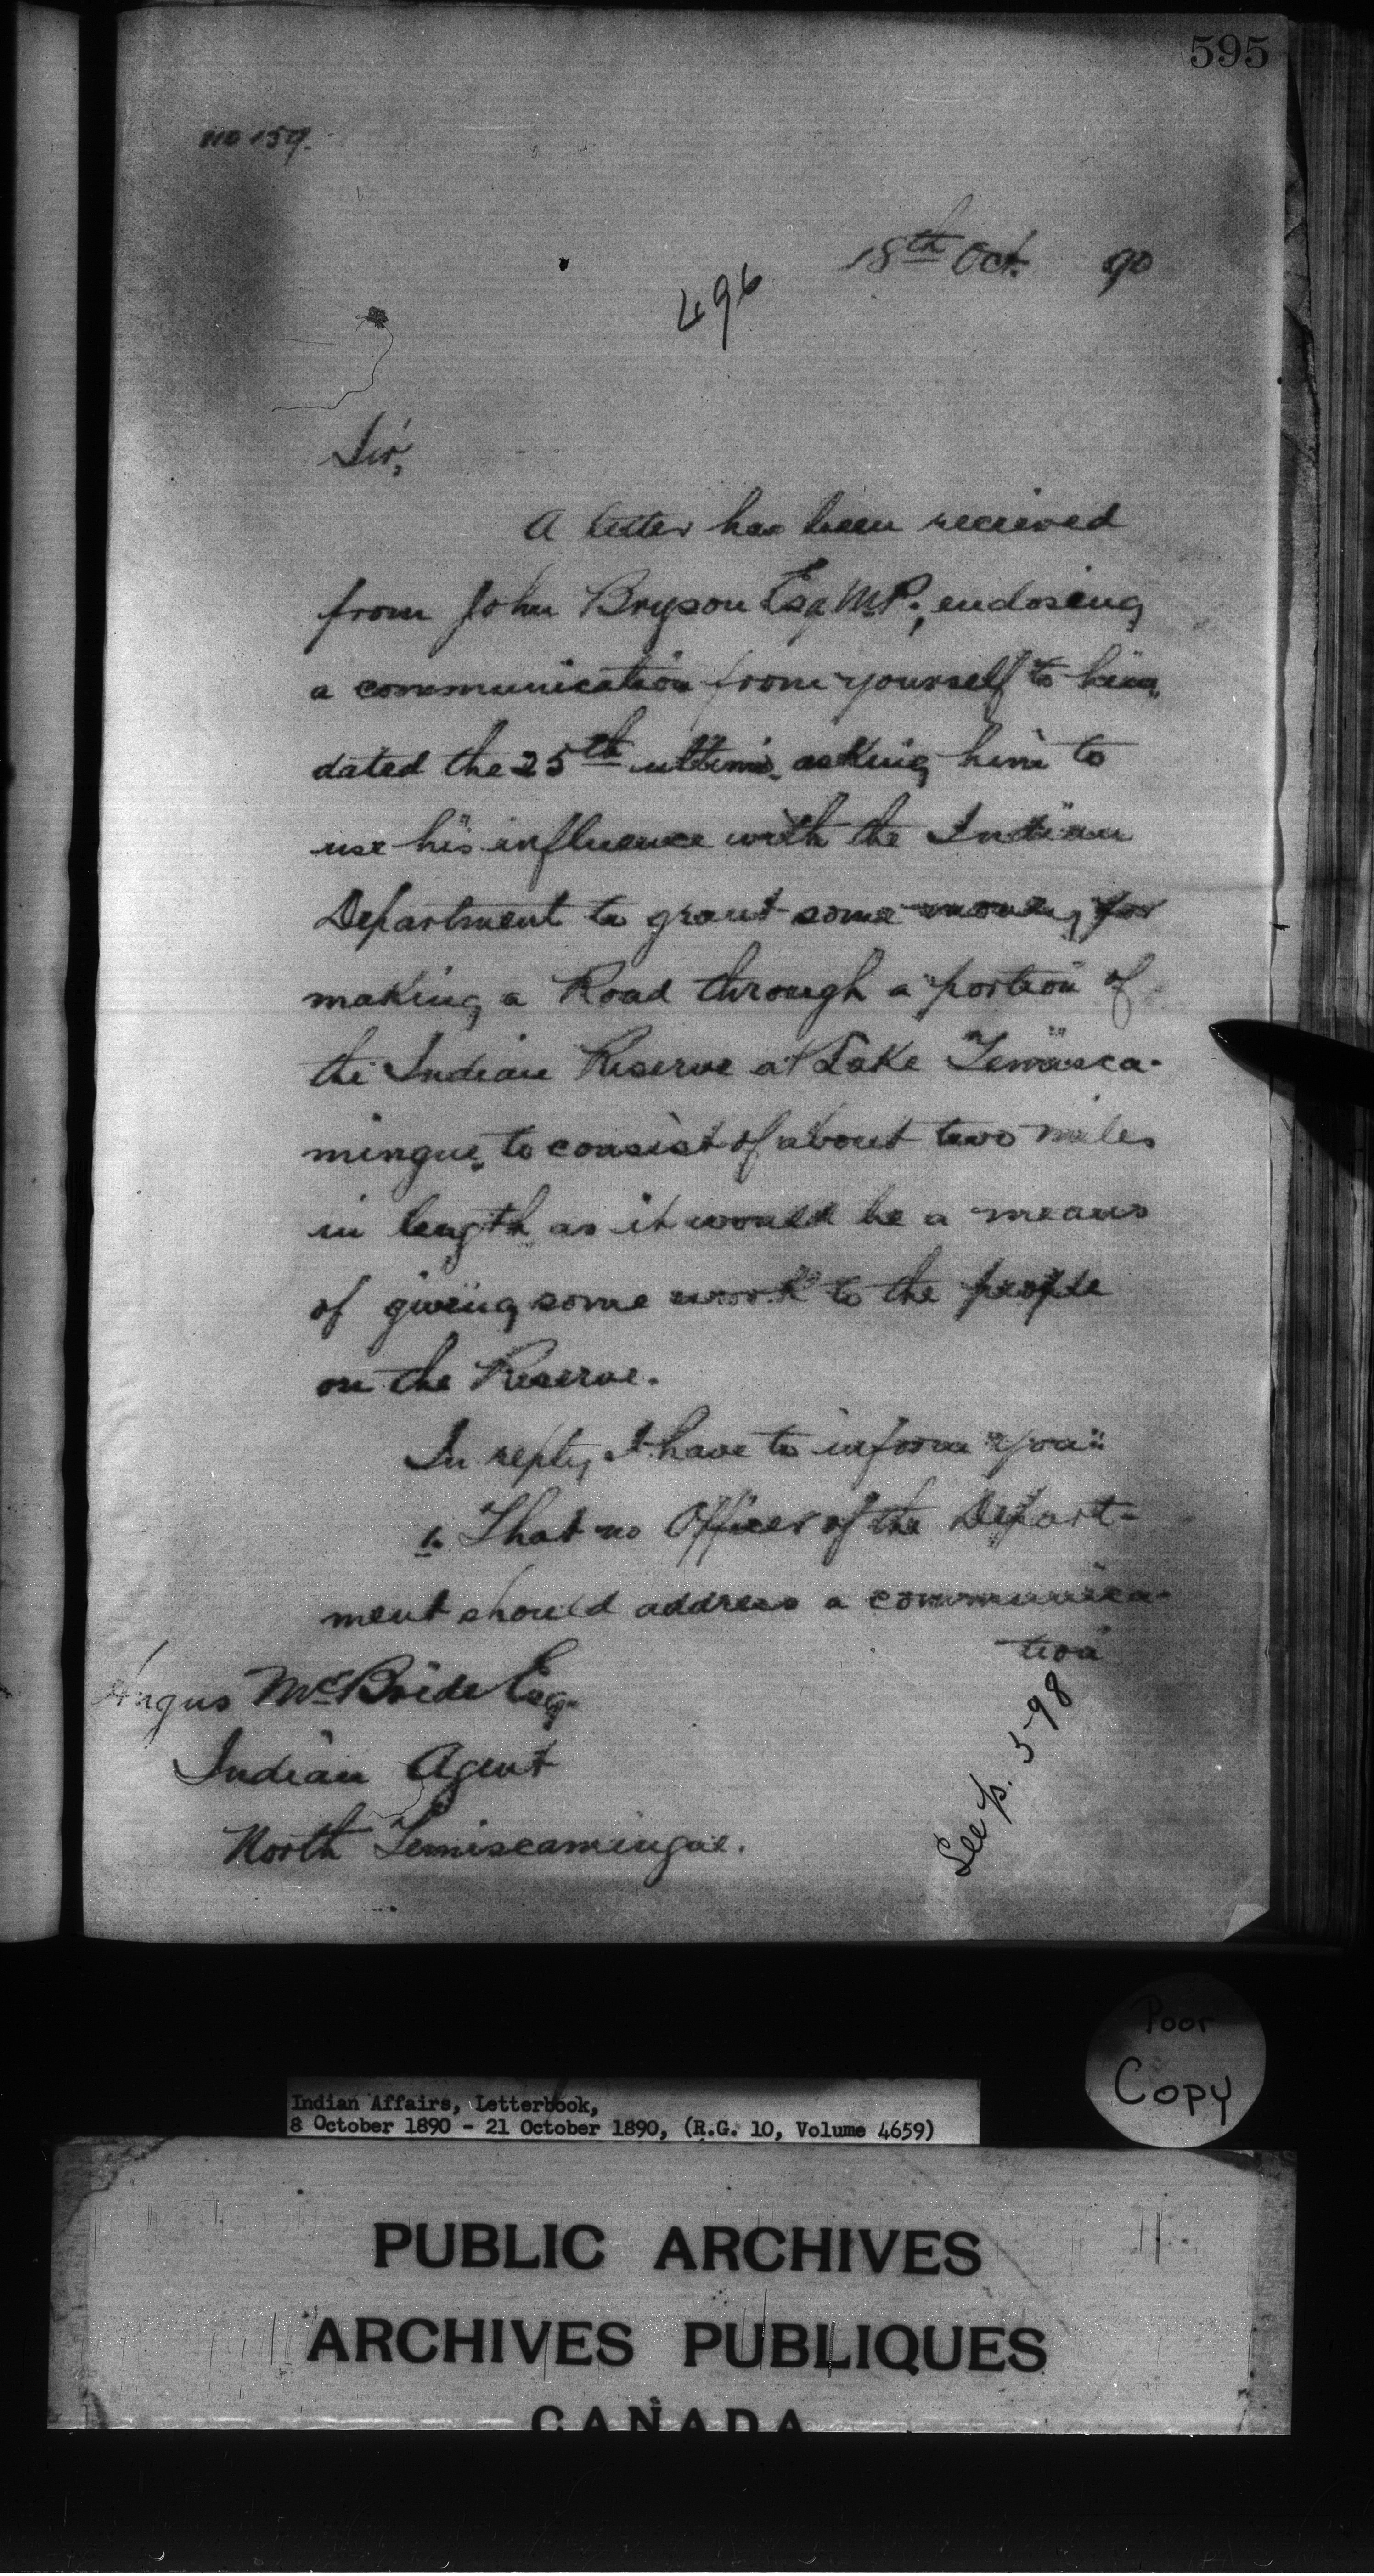 595
no 159.
18th Oct. 90
496
Sir,
A letter has been recieved
from John Bryson Esq M.P., enclosing
a communication from yourself to him,
dated the 25th ultimo, asking him to
use his influence with the Indian
Department to grant some money for
making a Road through a portion of
the Indian Reserve at Lake Temisca-
mingue, to consist of about two miles
in length as it would be a means
of giving some work to the people
on the Reserve.
In reply, I have to inform you:
1. That no Officer of the Depart-
ment should address a communica-
tion
Angus McBride Esq.
Indian Agent
North Temiscamingue.
See p. 598
Poor
Copy
Indian Affairs, Letterbook,
8 October 1890 - 21 October 1890, (R.G. 10, Volume 4659)
PUBLIC ARCHIVES
ARCHIVES PUBLIQUES
CANADA